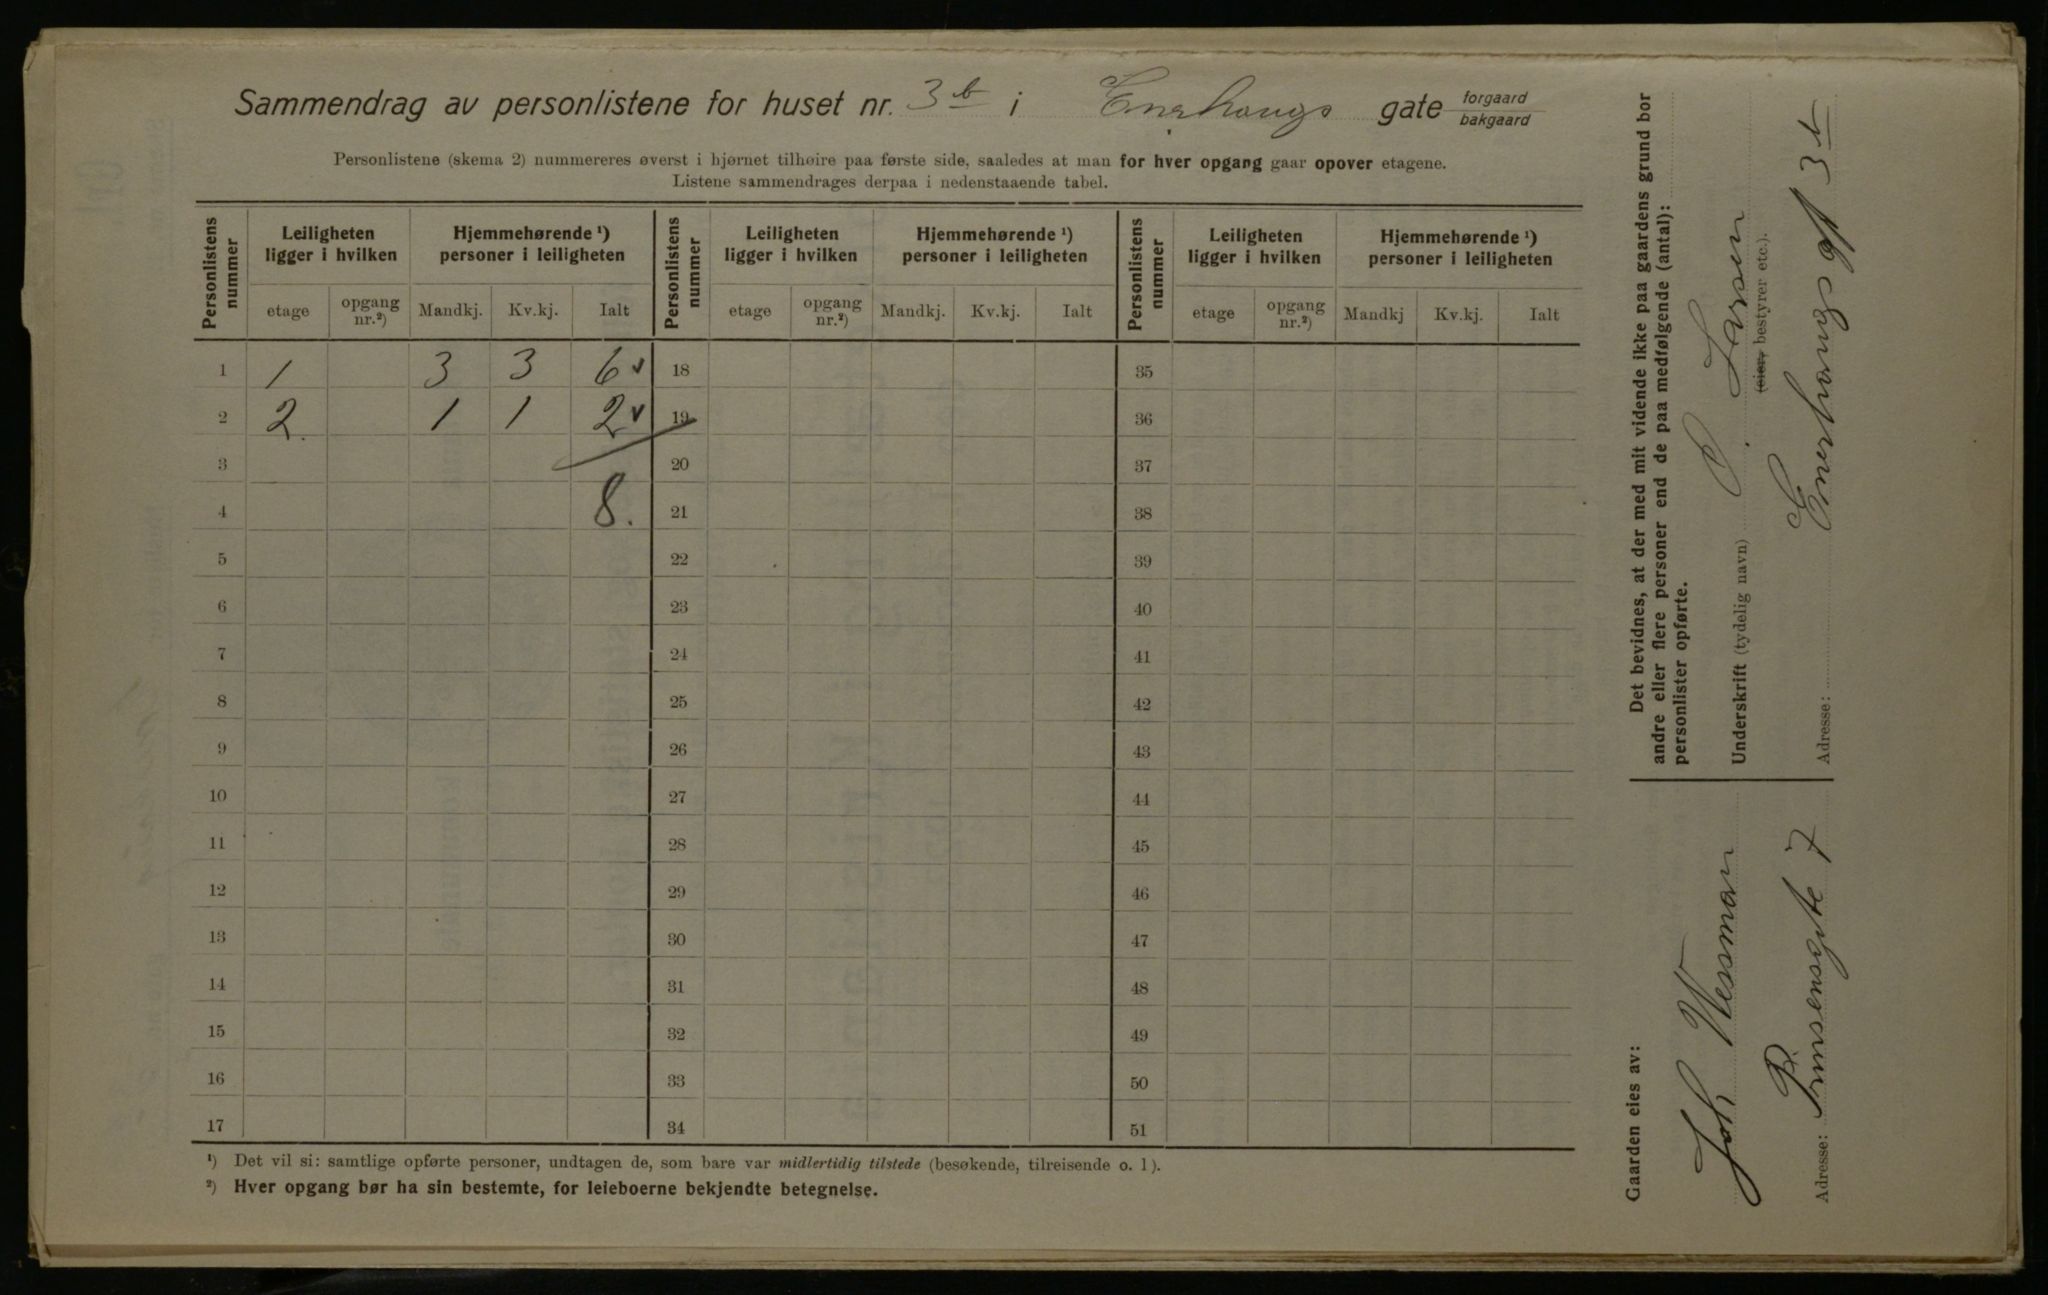 Sammendrag av personlistene for huset nr. 3 b i Enerhaugs gate forgaard bakgaard
Personlistene (skema 2) nummereres øverst i hjørnet tilhøire paa første side, saaledes at man for hver opgang gaar opover etagene.
Listene sammendrages derpaa i nedenstaaende tabel.
Personlistens nummer | Leiligheten ligger i hvilken | Hjemmehørende ¹) personer i leiligheten | Personlistens nummer | Leiligheten ligger i hvilken | Hjemmehørende ¹) personer i leiligheten | Personlistens nummer | Leiligheten ligger i hvilken | Hjemmehørende ¹) personer i leiligheten
etage | opgang nr.²) | Mandkj. | Kv.kj. | Ialt | etage | opgang nr.²) | Mandkj. | Kv.kj. | Ialt | etage | opgang nr.²) | Mandkj | Kv.kj. | Ialt
1 | 1 | 3 | 3 | 6 ✓ | 18 | 35
2 | 2. | 1 | 1 | 2 ✓ | 19 | 36
3 | 20 | 37
4 | 8. | 21 | 38
5 | 22 | 39
6 | 23 | 40
7 | 24 | 41
8 | 25 | 42
9 | 26 | 43
10 | 27 | 44
11 | 28 | 45
12 | 29 | 46
13 | 30 | 47
14 | 31 | 48
15 | 32 | 49
16 | 33 | 50
17 | 34 | 51
¹) Det vil si: samtlige opførte personer, undtagen de, som bare var midlertidig tilstede (besøkende, tilreisende o. l).
²) Hver opgang bør ha sin bestemte, for leieboerne bekjendte betegnelse.
Det bevidnes, at der med mit vidende ikke paa gaardens grund bor
andre eller flere personer end de paa medfølgende (antal):
personlister opførte.
Underskrift (tydelig navn) O. Larsen
(eier, bestyrer etc.).
Adresse: Enerhaugs gt 3 b
Gaarden eies av:
Joh Wessman
Adresse: Prinsensgate 7